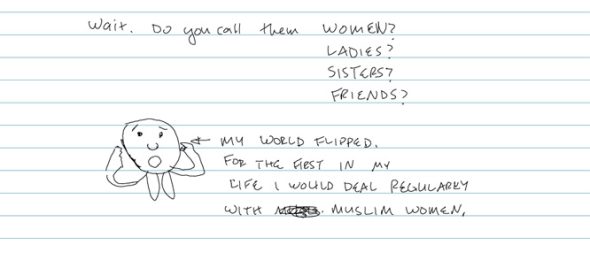 Wait. Do you call them WOMEN?
LADIES?
SISTERS?
FRIENDS?
MY WORLD FLIPPED.
FOR THE FIRST IN MY
LIFE I WOULD DEAL REGULARLY
WITH MUSLIM WOMEN.